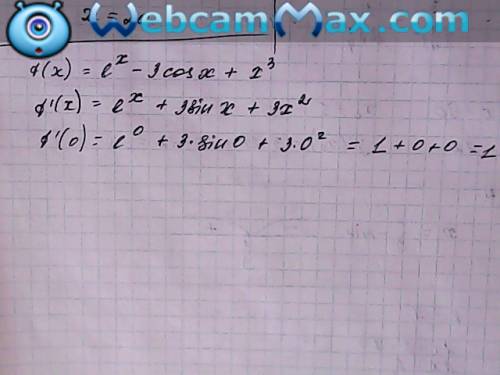 WebcamMax.com
f(x) = e^x - 3cosx + x^3
f'(x) = e^x + 3sin x + 3x^2
f'(0) = e^0 + 3·sin0 + 3·0^2 = 1+0+0 =1